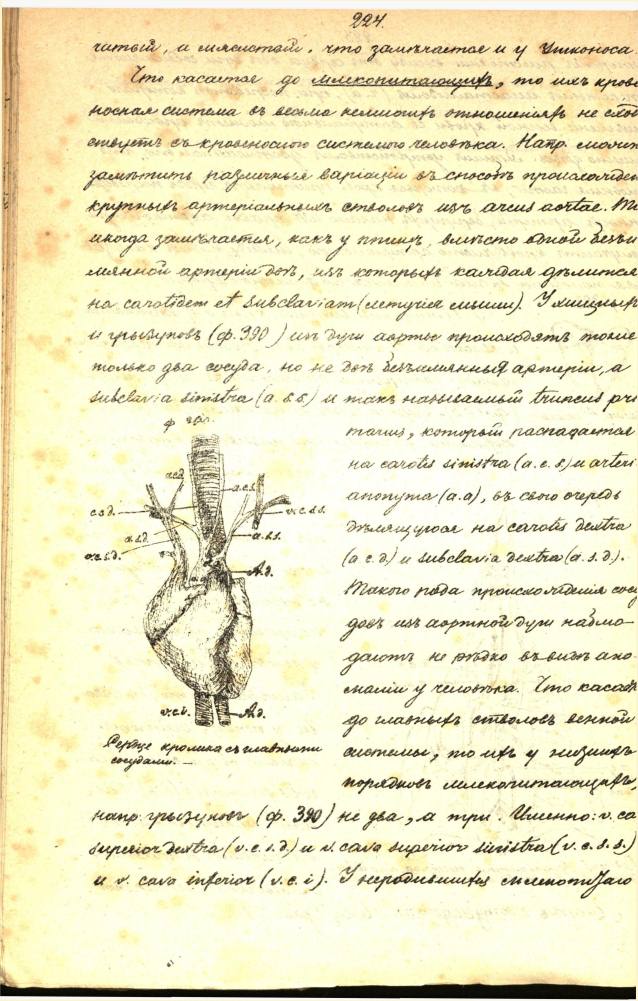 224.
чатый, и мясистый, что замѣчается и у утконоса
Что касается до млекопитающихъ, то ихъ крове
носная система въ весьма немногихъ отношеніяхъ не сход
ствуетъ съ кровеносною системою человѣка. Напр. можн
замѣтить различныя варіаціи въ способѣ происхожден
крупныхъ артеріальныхъ стволовъ изъ arcus aortae.
иногда замѣчается, какъ у птицъ, вмѣсто одной безъи
мянной артеріи двѣ, изъ которыхъ каждая дѣлится
на carotidem et subclaviam (летучія мыши). У хищных
и грызуновъ (ф. 390) изъ дуги аорты происходятъ тоже
только два сосуда, но не двѣ безъимянныя артеріи, а
subclavia sinistra (a. s. s.) и такъ называемый truncus pri
ф 390.
marius, который распадается
на carotis sinistra (a. c. s.) и artери
анопута (a. a), въ свою очередь
дѣлящуюся на carotis dextra
(a. c. d.) и subclavia dextra (a. s. d.).
Такого рода происхожденія сосу
довъ изъ аортной дуги наблю
даютъ не рѣдко въ видѣ ано
маліи у человѣка. Что касает
до главныхъ стволовъ венной
системы, то ихъ у низшихъ
порядковъ млекопитающихъ,
a.c.d.
a.c.s.
c.s.d.
v.c.s.s.
a.s.d.
a.s.s.
v.c.s.d.
A.d.
v.c.i.
A.d.
Сердце кролика съ главными
сосудами. —
напр. грызуновъ (ф. 390) не два, а три. Именно: v. ca
superior dextra (v. c. s. d.) и v. cava superior sinistra (v. c. s. s.)
и v. cava inferior (v. c. i.). У неродившихся млекопитаю